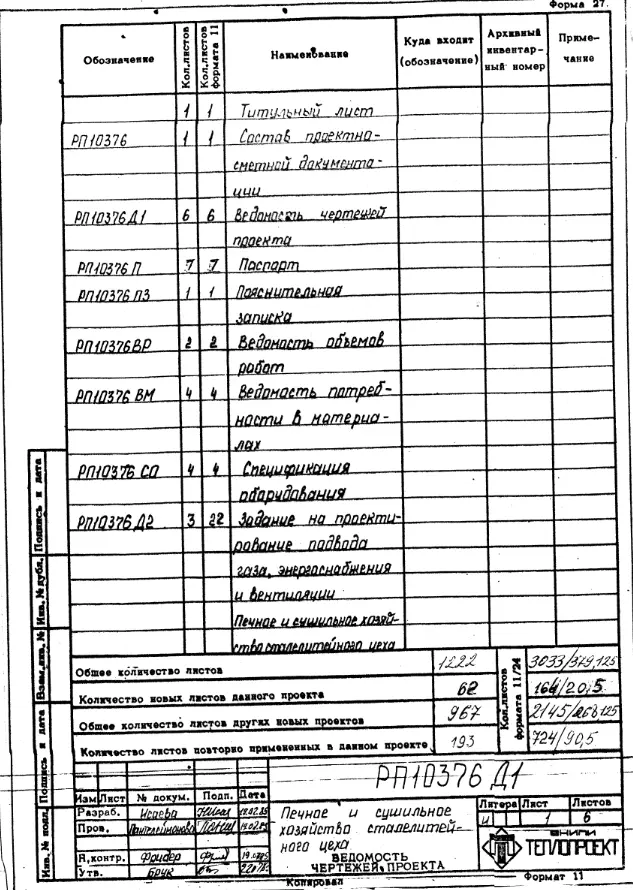 Форма 27.
Обозначение Кол.листов Кол.листов формата 11 Наименование Куда входит (обозначение) Архивный инвентар-ный номер Приме-чание
1 1 Титульный лист
РП10376 1 1 Состав проектно-
сметной документа-
ции
РП10376Д1 6 6 Ведомость чертежей
проекта
РП10376 П 7 7 Паспорт
РП10376 ПЗ 1 1 Пояснительная
записка
РП10376ВР 2 2 Ведомость объемов
работ
РП10376 ВМ 4 4 Ведомость потреб-
ности в материа-
лах
РП10376 СО 4 4 Спецификация
оборудования
РП10376 Д2 3 22 Задание на проекти-
рование подвода
газа, энергоснабжения
и вентиляции
Печное и сушильное хозяй-
ство сталелитейного цеха
Общее количество листов 1222 Кол.листов формата 11/24 3033/379,125
Количество новых листов данного проекта 62 164/20,5
Общее количество листов других новых проектов 967 2145/268,125
Количество листов повторно примененных в данном проекте 193 724/90,5
Инв. № подл. Подпись и дата Взам.инв. № Инв. № дубл. Подпись и дата
РП10376 Д1
Изм Лист № докум. Подп. Дата
Разраб. Исаева
Пров. Пантелеймонова
Н.контр. Фридер
Утв. Брук
Печное и сушильное
хозяйство сталелитей-
ного цеха
ВЕДОМОСТЬ
ЧЕРТЕЖЕЙ ПРОЕКТА
Литера Лист Листов
и 1 6
ВНИПИ
ТЕПЛОПРОЕКТ
Копировал Формат 11